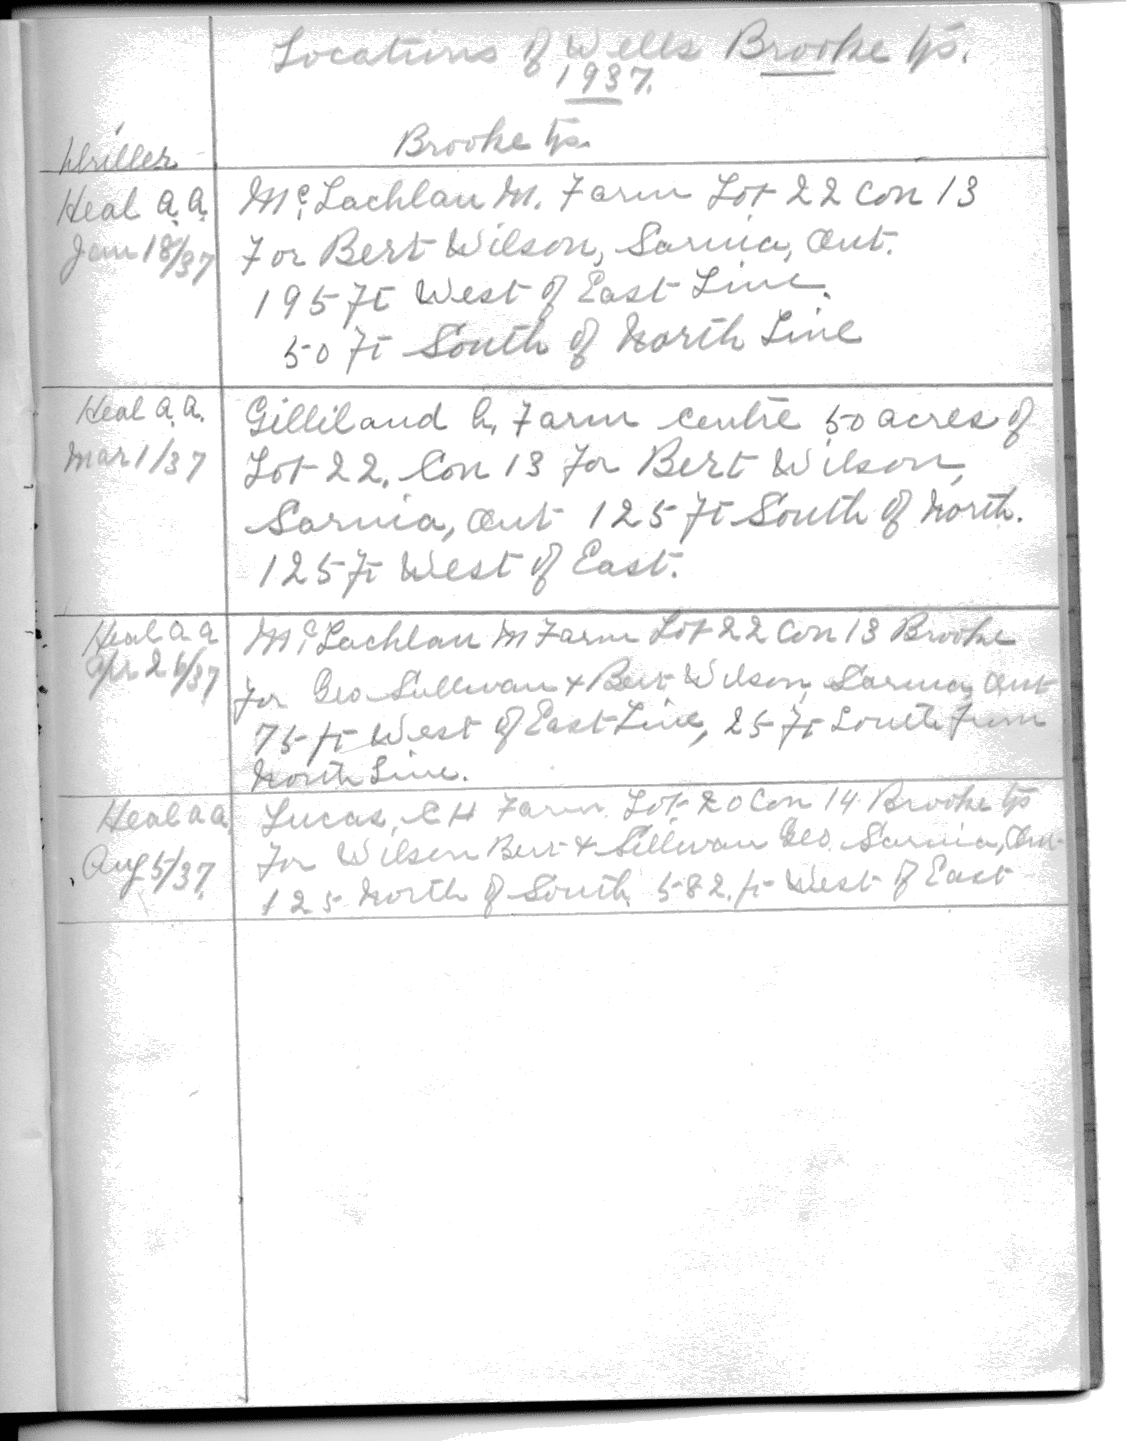 Locations of Wells Brooke Tps.
1937.
Brooke Tps.
Driller
Heal A. A. McLachlan M. Farm Lot 22 Con 13
Jan 18/37 For Bert Wilson, Sarnia, Ont.
195 Ft West of East Line.
50 Ft South of North Line
Heal A. A. Gilliland C. Farm centre 50 acres of
Mar 1/37 Lot 22, Con 13 For Bert Wilson
Sarnia, Ont 125 Ft South of North.
125 Ft West of East.
Heal A A McLachlan M Farm Lot 22 Con 13 Brooke
Apr 26/37 For Geo Sullivan & Bert Wilson, Sarnia, Ont
75 ft West of East Line, 25 Ft South From
North Line.
Heal A A. Lucas, E H Farm. Lot 20 Con 14 Brooke Tps
Aug 5/37 For Wilson Bert & Sullivan Geo. Sarnia, Ont.
125 North of South, 582. ft West of East